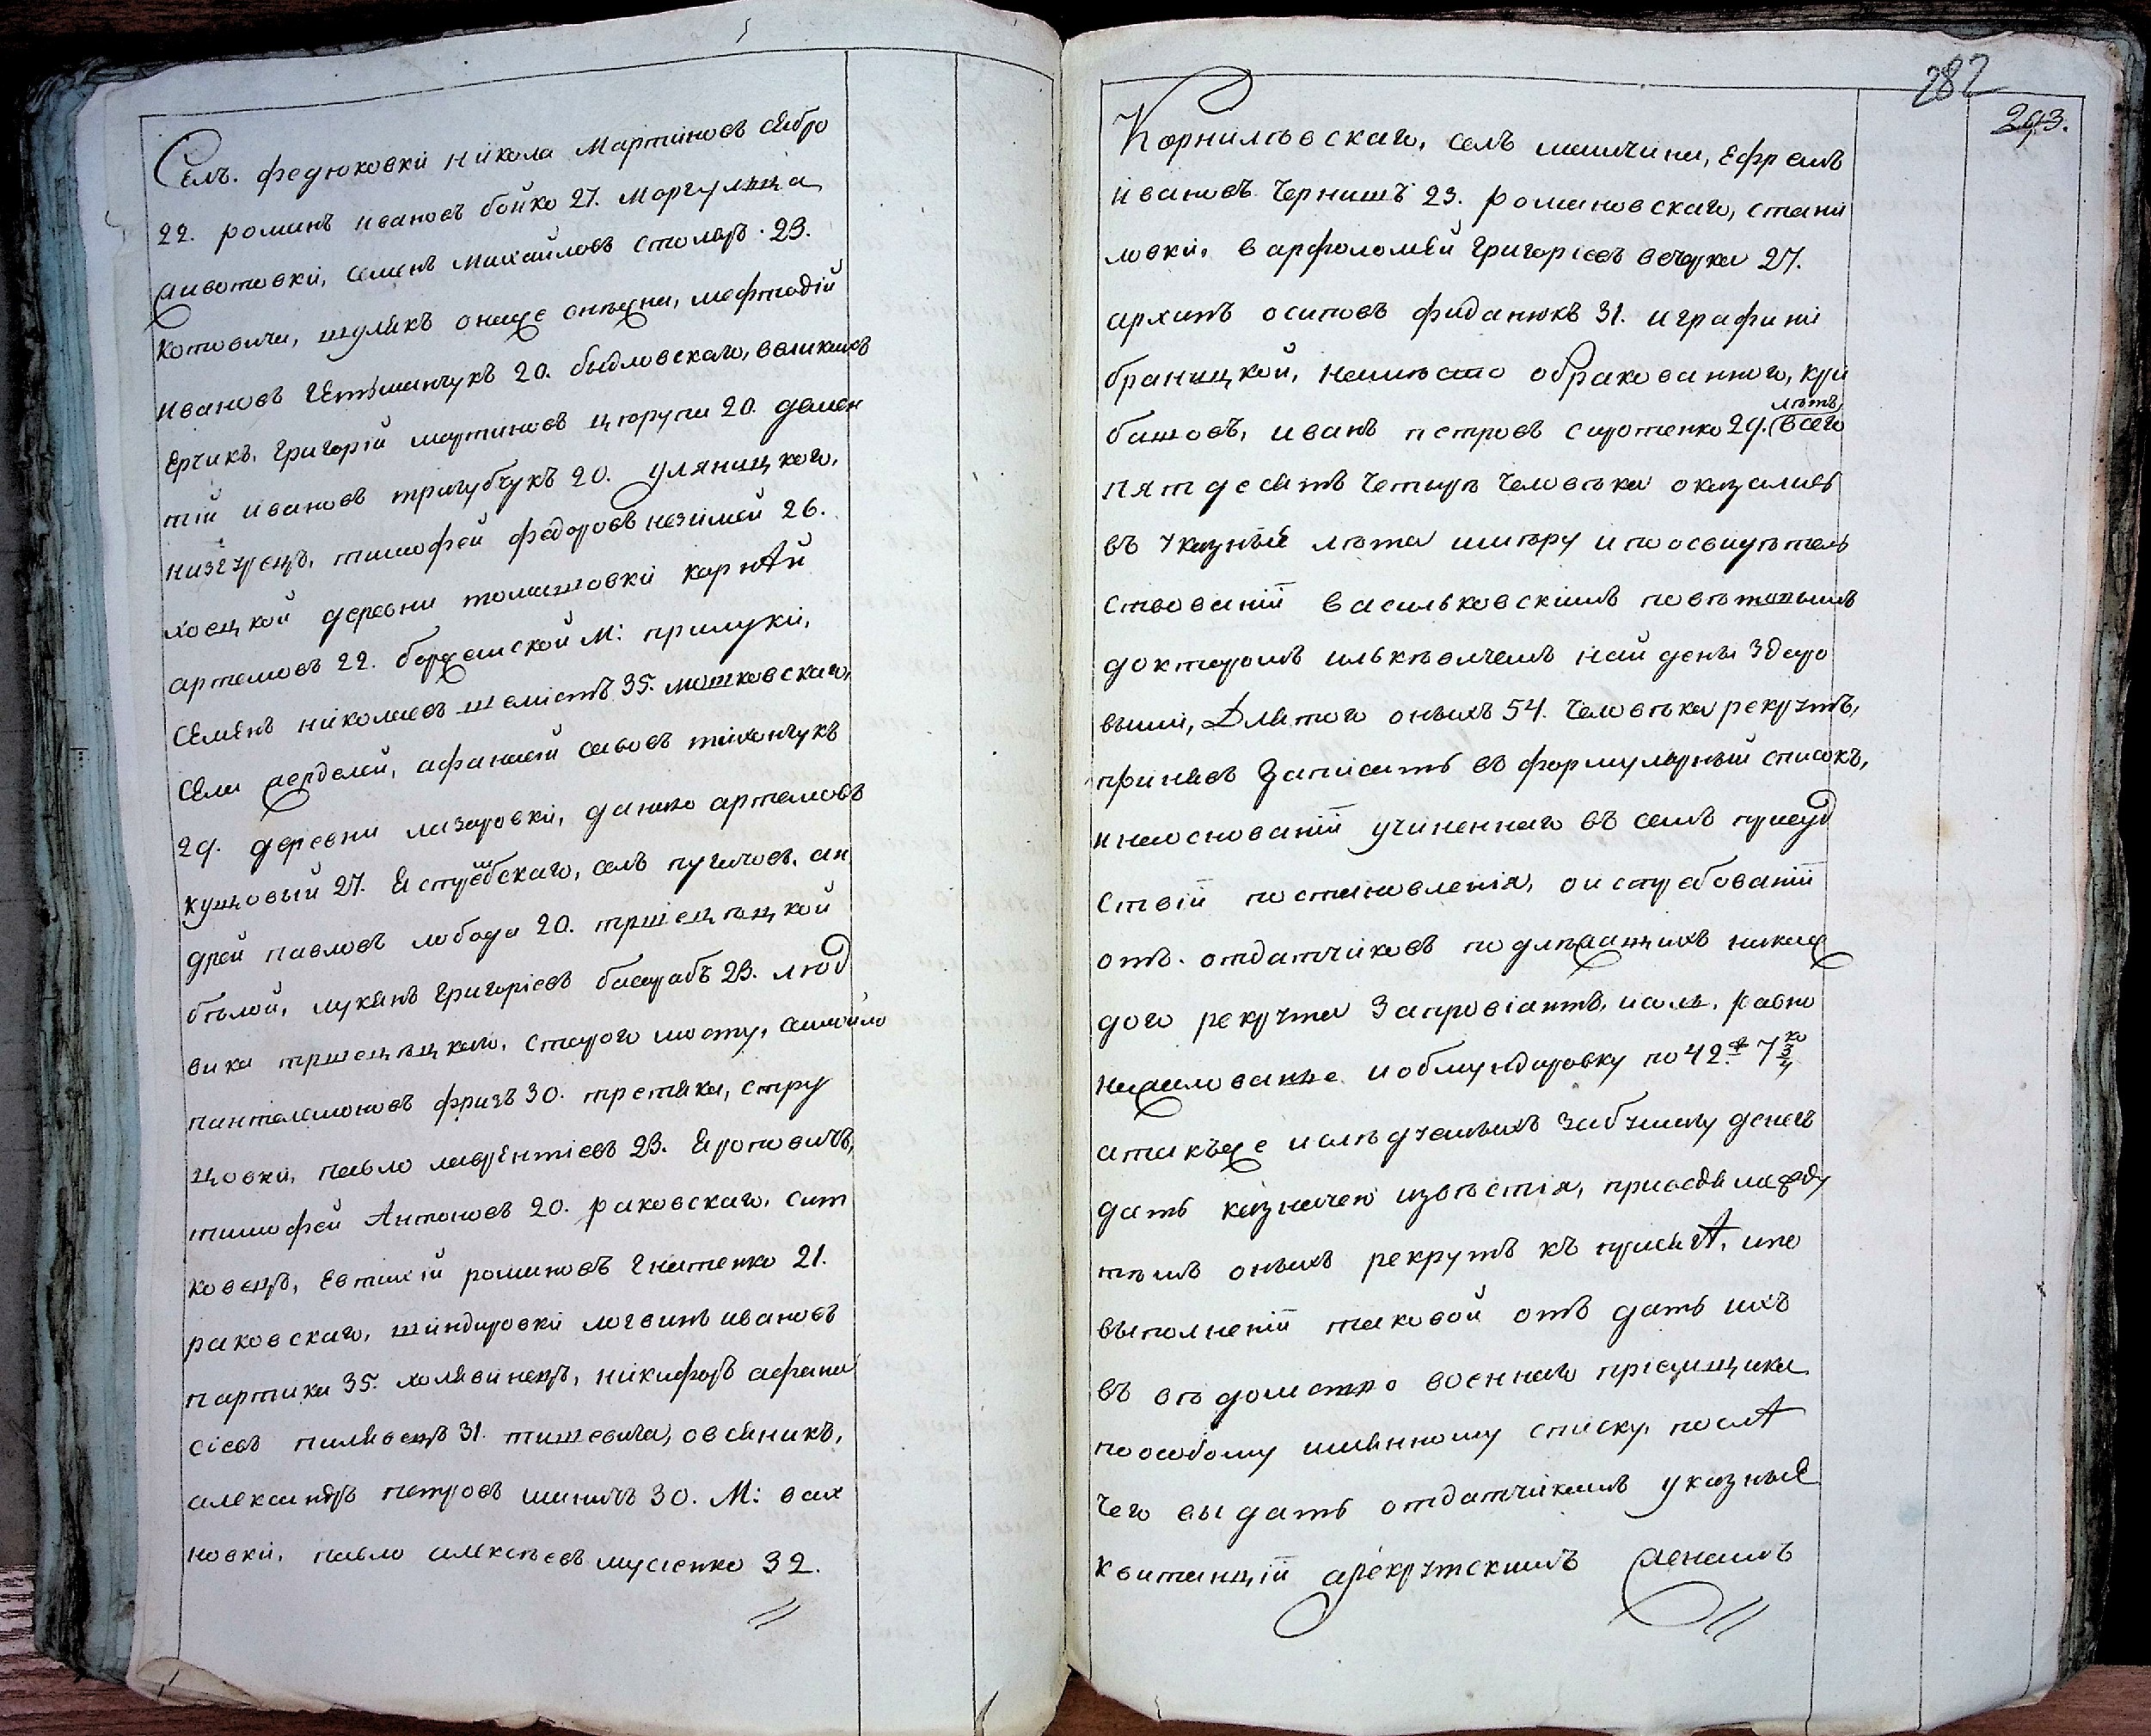 Селъ. федюковки никола Мартиновъ себро
22. романъ ивановъ бойко 27. Моргулца
животовки, семенъ михайловъ столяръ. 23.
котовича, шулякъ онаже онъжна, мефтодій
ивановъ гетьманчукъ 20. быдловскаго, великихъ
ерчикъ, григорій мартиновъ цюрупа 20. демен
тій ивановъ тригубчукъ 20. уляницкого,
низгурецъ, тимофей федоровъ незімай 26.
хоецкой деревни томашовки корнѣй
артемовъ 22. боржемской М: прилуки,
семенъ николаевъ шелістъ 35. мошковскаго,
села жерделей, афанасій савовъ тихончукъ
29. деревни лазаровки, данило артемовъ
кущовый 27. Ястрембскаго, селъ пугачов, ан
дрей павловъ лобода 20. тршецѣцкой
бѣлой, лукянъ григоріевъ басарабъ 23. люд
вика тршецѣцкаго, старого мосту, самойло
пантелемоновъ фризъ 30. третяка, стру
цовки, павло лаврентіевъ 23. Яроповичъ,
тимофей Антоновъ 20. раковскаго, сит
ковецъ, евтихій романовъ гнатенко 21.
раковскаго, шиндировки логвинъ ивановъ
партика 35. холявинецъ, никифоръ афана
сіевъ пилявецъ 31. тишевича, овсяникъ,
александръ петровъ шинычъ 30. М: вах
новки, павло алексѣевъ мусіенко 32.
282
293.
Корниловскаго, селъ мшичини, ефремъ
ивановъ чернишъ 23. романовскаго, стани
ловки, варфоломей григоріевъ вечерка 27.
архипъ осиповъ фиданюкъ 31. и графини
браницкой, намѣсто обракованного, кри
башовъ, иванъ петровъ сиротенко 29. лѣтъ, (всего
пятдесятъ четыре человѣка оказались
въ указныя лѣта имѣру и по освидѣтель
ствованіи васильковскимъ повѣтовымъ
докторомъ илькѣвичемъ найдены здоро
выми, Для того оныхъ 54. человѣка рекрутъ,
принявъ записать въ формулярный списокъ,
и на основаніи учиненнаго въ семъ присуд
ствіи постановленія, о истребованіи
отъ отдатчиковъ подлежащихъ накаж
дого рекрута за провіантъ, соль, равно
на жалованье и обмундировку по 42. р 7 3/4 ко
а такъже и слѣдуемыхъ за бумагу денегъ
дать казначею извѣстія, приведя между
тѣмъ оныхъ рекрутъ къ присягѣ, и по
выполненіи таковой отъ дать ихъ
въ вѣдомство военнаго пріемщика
по особому имянному списку, послѣ
чего выдать отдатчикамъ указныя
квитанціи а рекрутскимъ женамъ